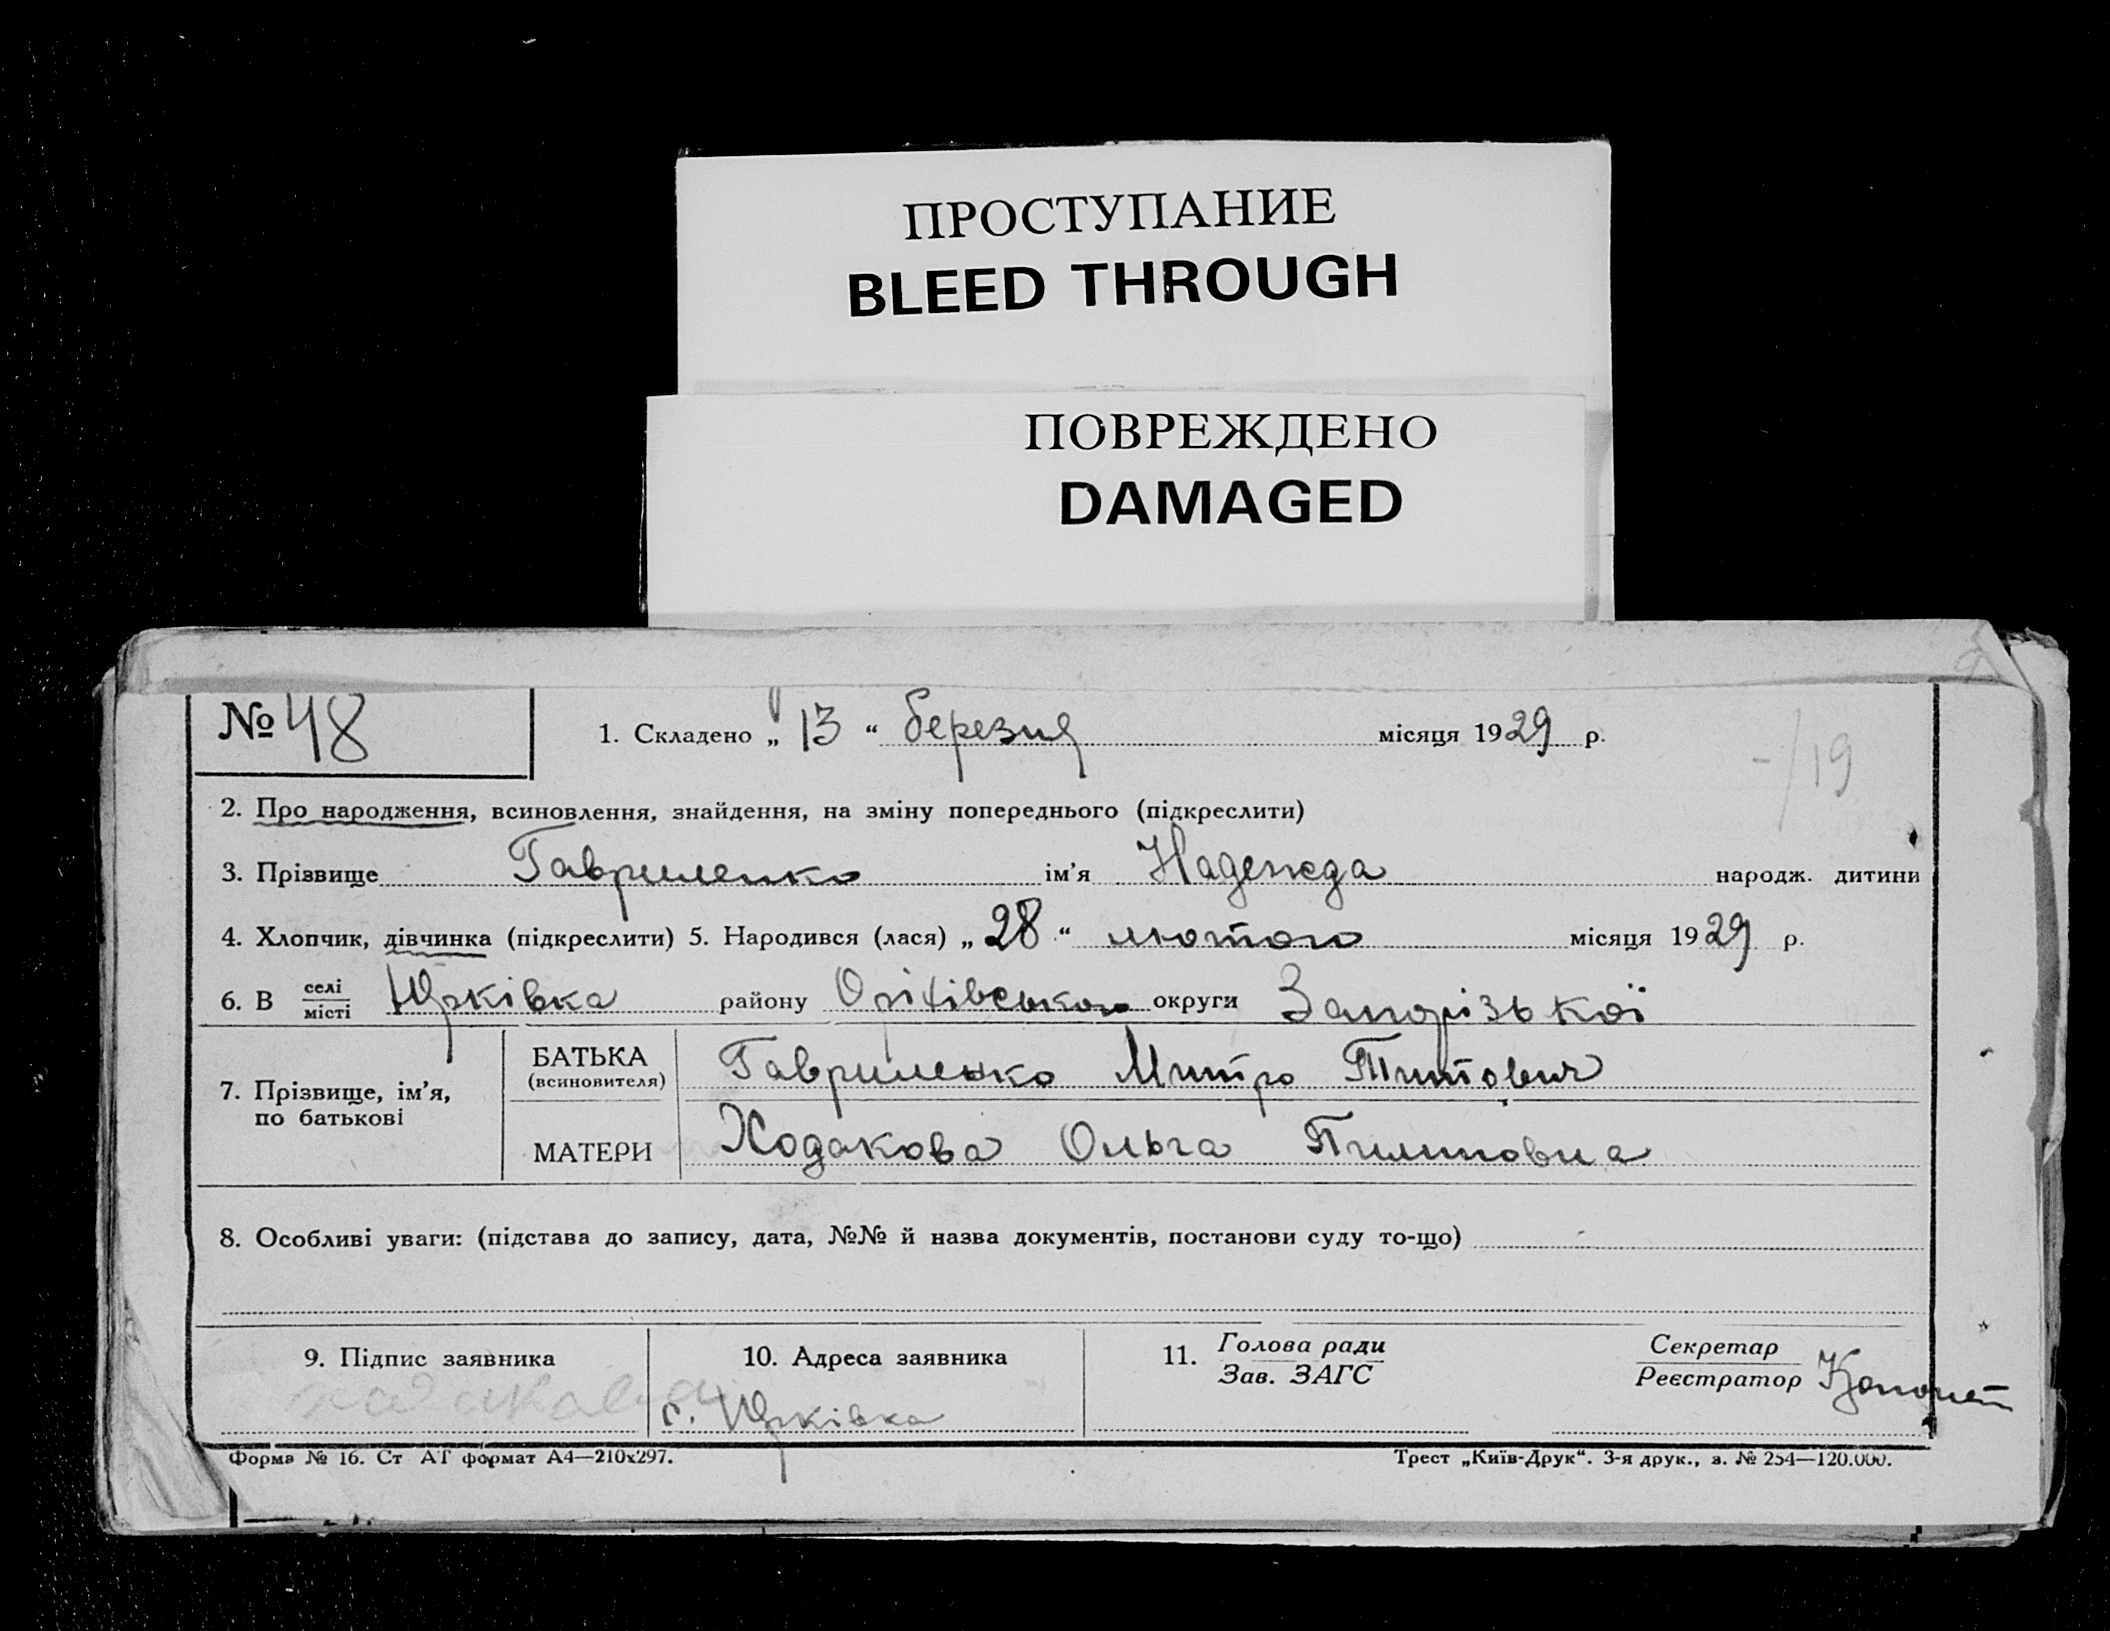 ПРОСТУПАНИЕ
BLEED THROUGH
ПОВРЕЖДЕНО
DAMAGED
№ 48 1. Складено „ 13 “ березня місяця 1929 р.
-/19
2. Про народження, всиновлення, знайдення, на зміну попереднього (підкреслити)
3. Прізвище Гавриленко ім’я Надежда народж. дитини
4. Хлопчик, дівчинка (підкреслити) 5. Народився (лася) „ 28 “ лютого місяця 1929 р.
6. В селі місті Юрківка району Оріхівського округи Запорізької
7. Прізвище, ім’я, по батькові
БАТЬКА (всиновителя) Гавриленко Митро Титович
МАТЕРИ Ходакова Ольга Пилиповна
8. Особливі уваги: (підстава до запису, дата, №№ й назва документів, постанови суду то-що)
9. Підпис заявника 10. Адреса заявника 11. Голова ради Зав. ЗАГС Секретар Реєстратор
ходакова с. Юрківка
Форма № 16. Ст АТ формат А4—210х297. Трест „Київ-Друк“. 3-я друк., з. № 254—120.000.